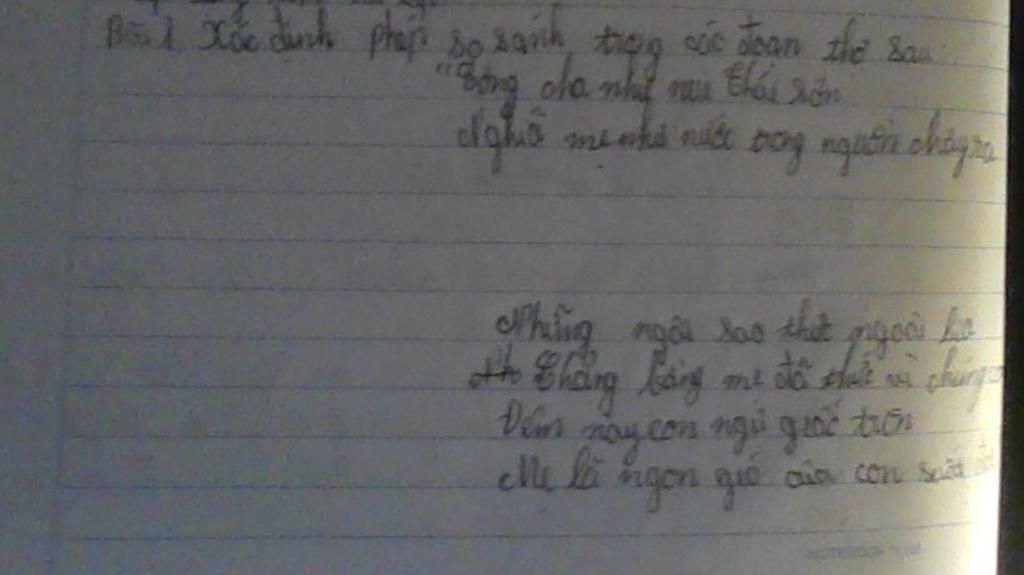 Bài 1 Xác định phép so sánh trong các đoạn thơ sau:
"Công cha như núi thái sơn
Nghĩa mẹ như nước trong nguồn chảy ra
Những ngôi sao thức ngoài kia
Chẳng bằng mẹ đã thức vì chúng
Đêm nay con ngủ giấc tròn
Mẹ là ngọn gió của con suốt